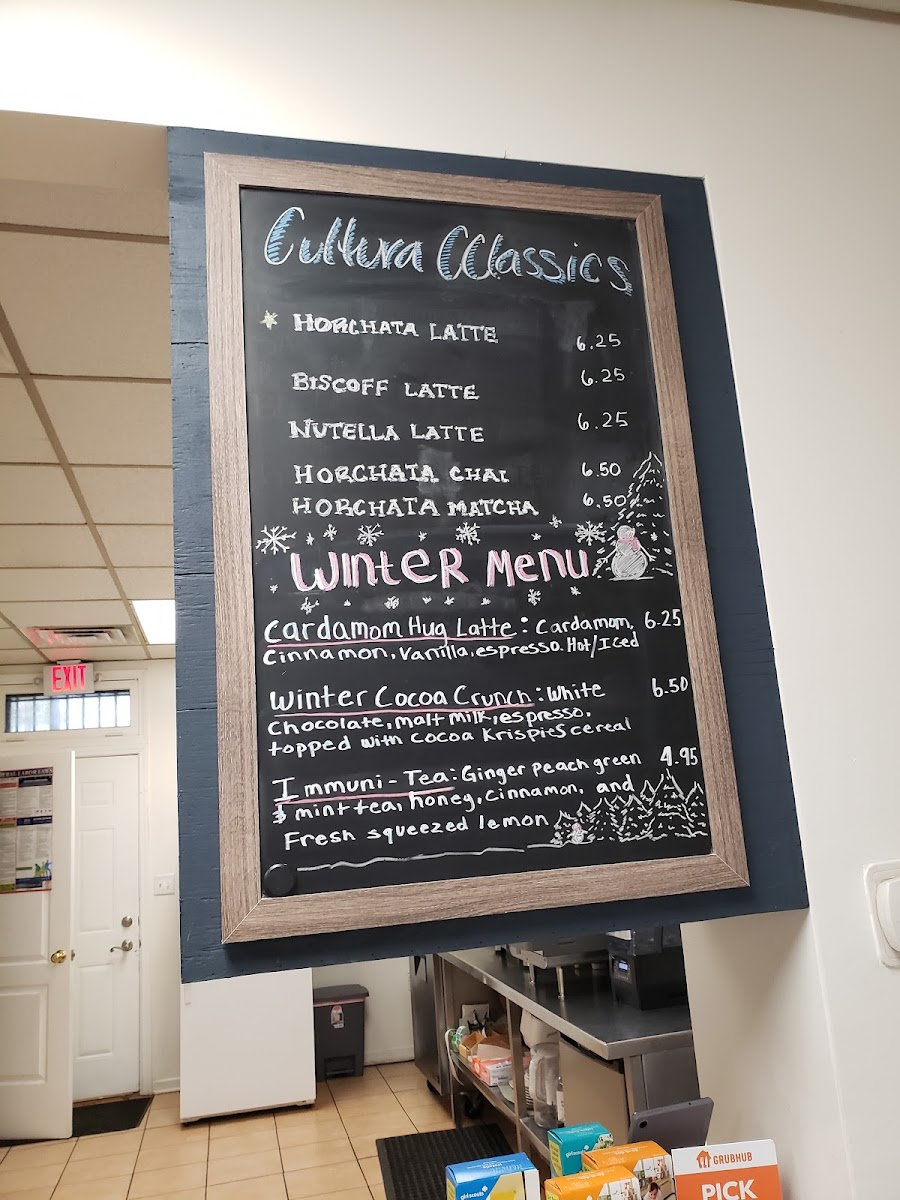 Cultura CClassics
HORCHATA LATTE 6.25
BISCOFF LATTE 6.25
NUTELLA LATTE 6.25
HORCHATA CHAI 6.50
HORCHATA MATCHA 6.50
WINteR Menu
Cardamom Hug Latte: Cardamom, 6.25
Cinnamon, Vanilla, espresso. Hot/Iced
Winter Cocoa Crunch: White 6.50
Chocolate, malt milk, espresso,
topped with Cocoa Krispies cereal
Immuni-Tea: Ginger peach green 4.95
& mint tea, honey, cinnamon, and
Fresh squeezed lemon
EXIT
GRUBHUB
PICK